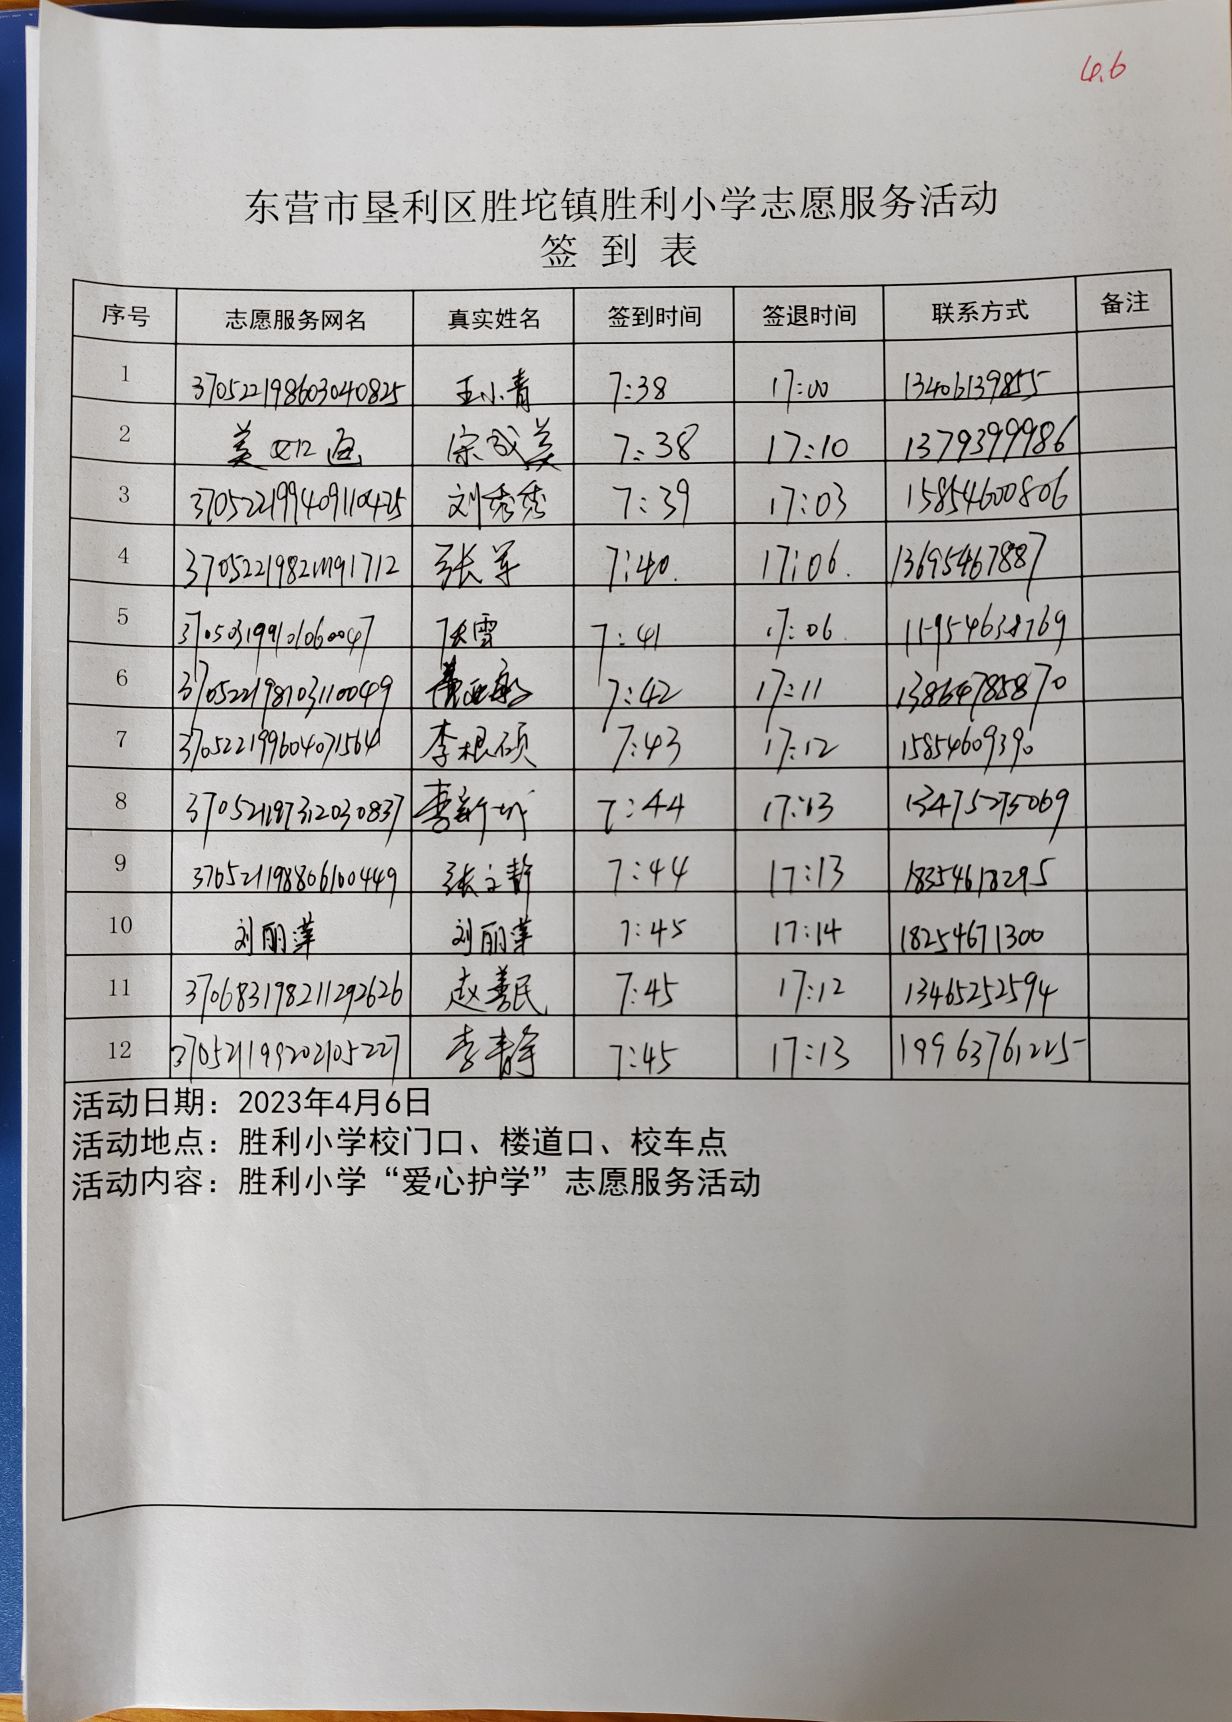 4.6
东营市垦利区胜坨镇胜利小学志愿服务活动
签 到 表
序号 志愿服务网名 真实姓名 签到时间 签退时间 联系方式 备注
1 370522198603040825 王小青 7:38 17:00 13406139855
2 美如画 宗成美 7:38 17:10 13793999986
3 370522199409110425 刘秀秀 7:39 17:03 15854600806
4 张军 7:40 17:06 13695467887
5 370503199101060047 张雪 7:41 17:06
6 370522198103110049 7:42 17:11 13864785870
7 370522199604071564 李根硕 7:43 17:12 15854609390
8 370521197312030837 李新城 7:44 17:13 13475275069
9 370521198806100449 张文静 7:44 17:13 18354618295
10 刘丽萍 刘丽萍 7:45 17:14 18254671300
11 370683198211292626 赵善民 7:45 17:12 13465252594
12 370521199202105227 李青 7:45 17:13 19963761225
活动日期：2023年4月6日
活动地点：胜利小学校门口、楼道口、校车点
活动内容：胜利小学“爱心护学”志愿服务活动